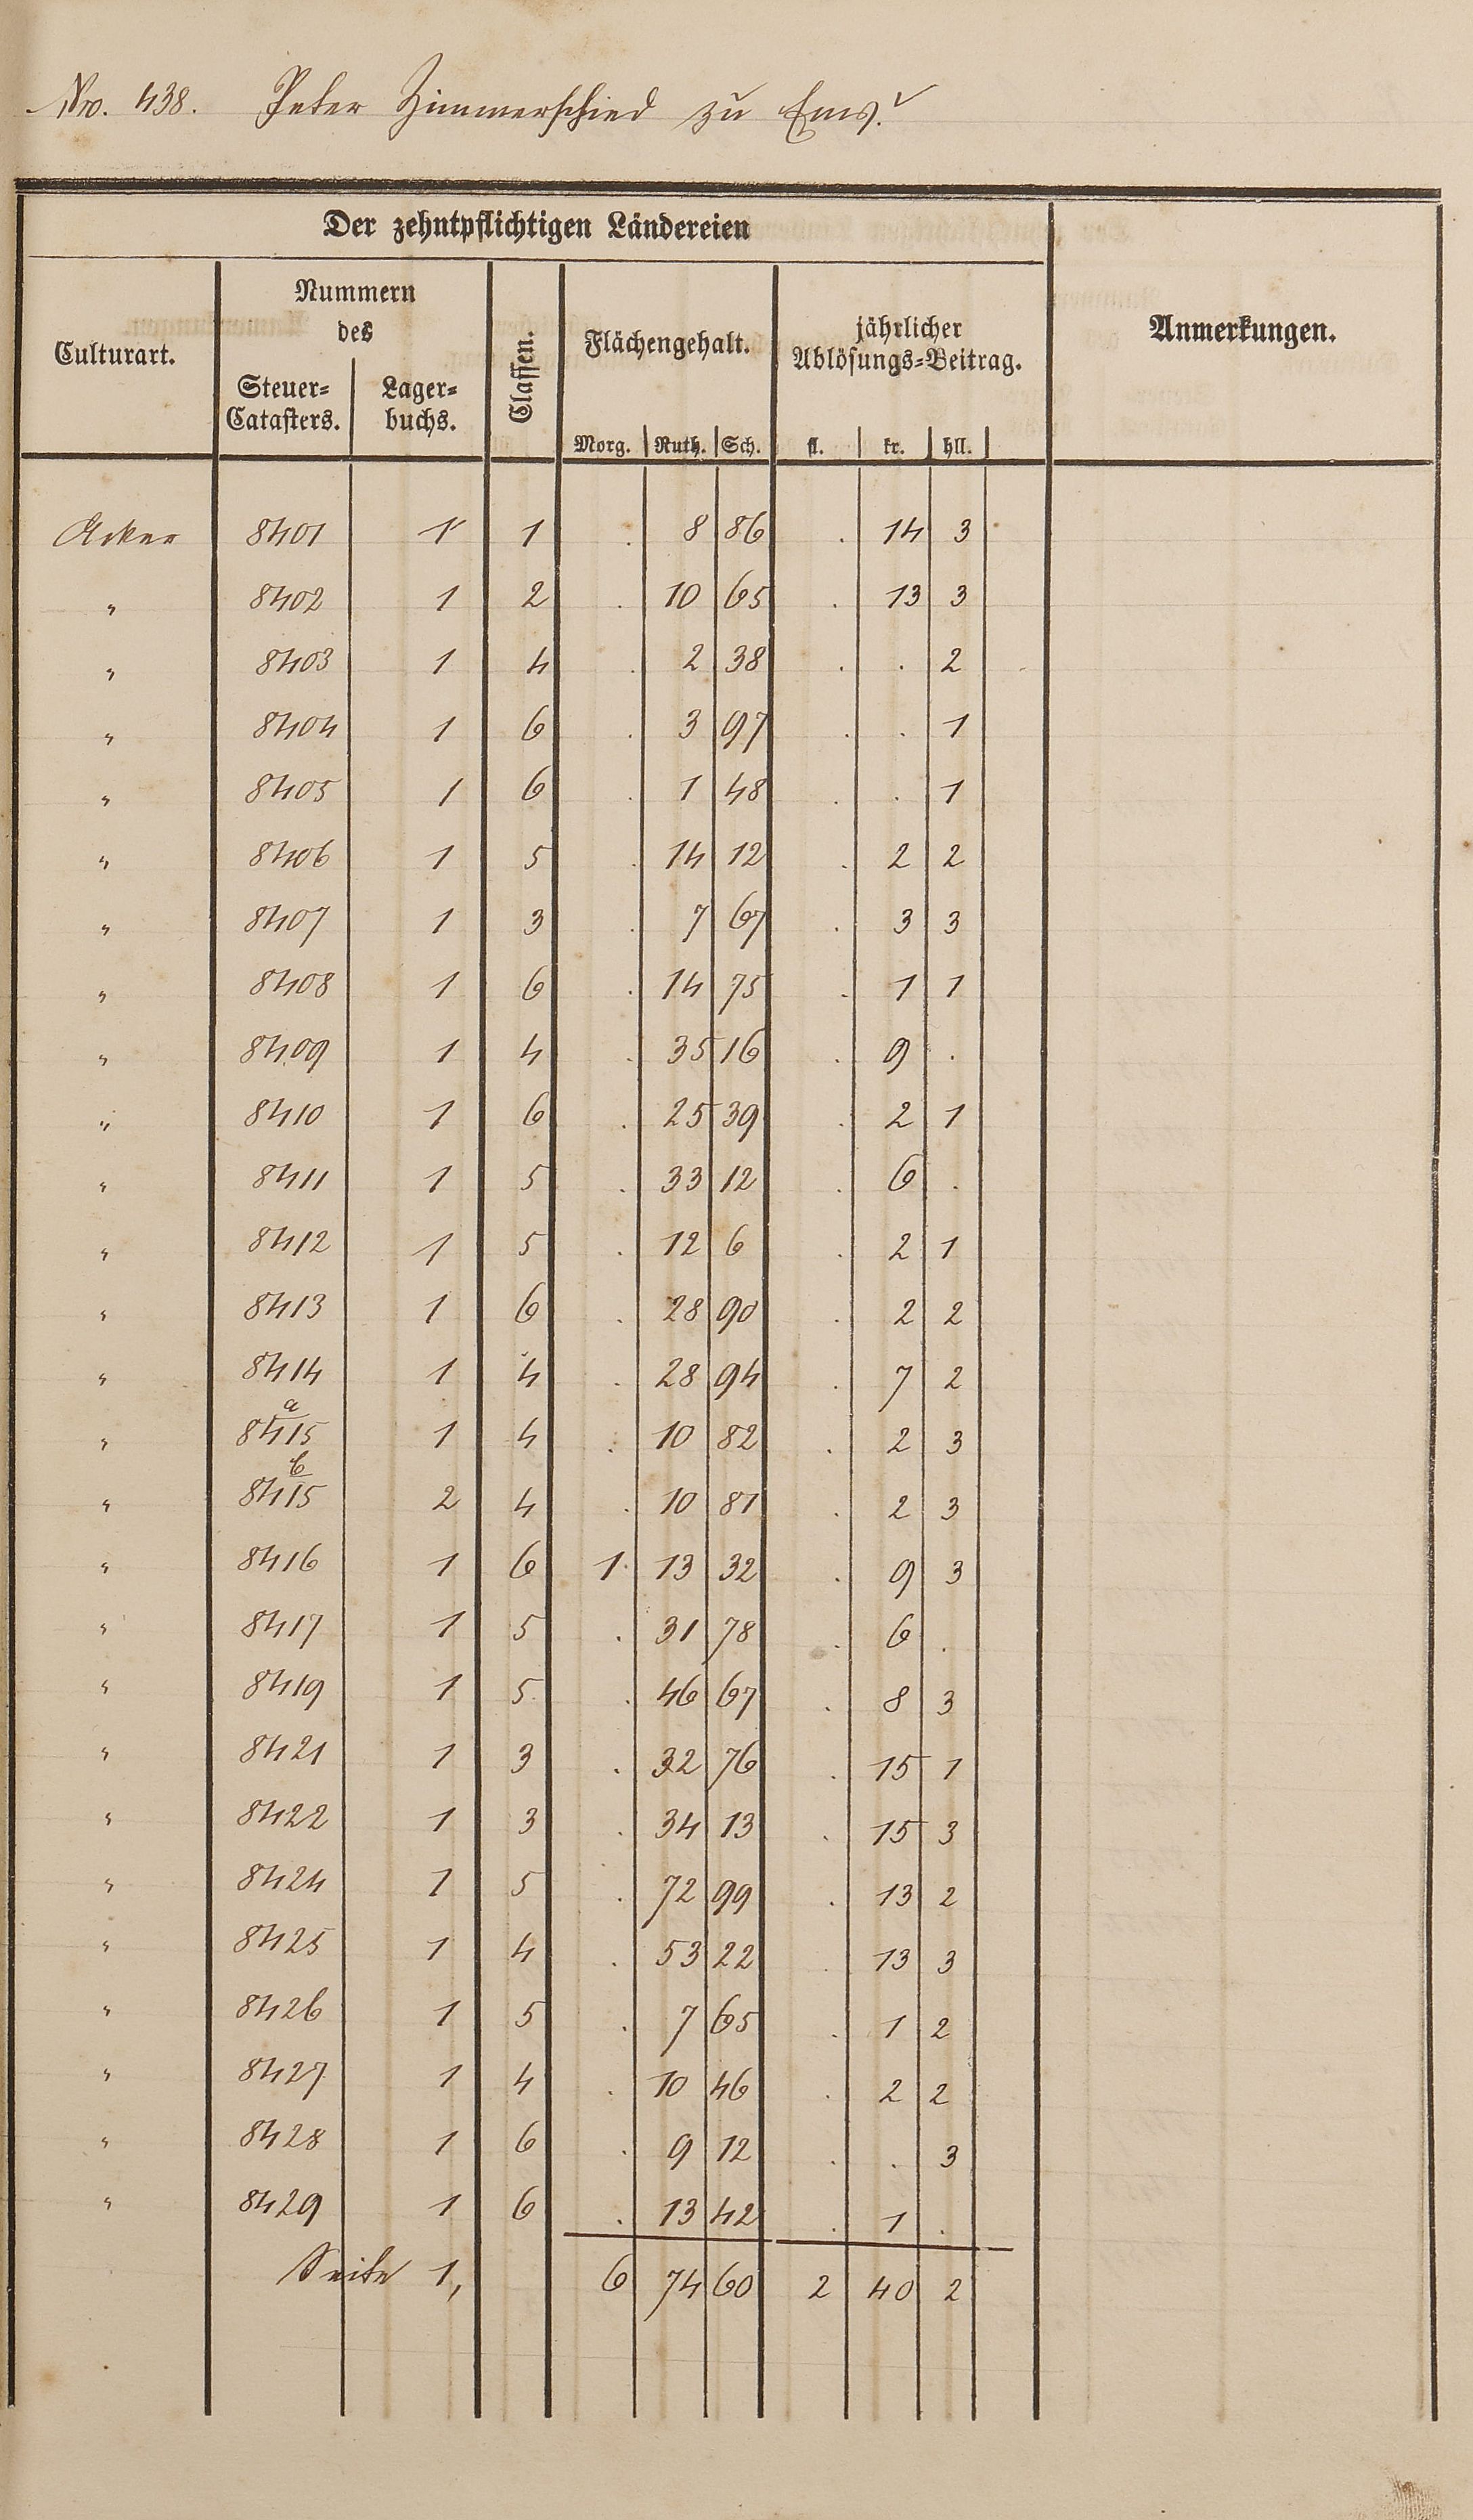 No. 438. Peter Zimmerschied zu Ems.
Der zehntpflichtigen Ländereien
Culturart.
Nummern
des
Steuer-
Catasters.
Lager-
buchs.
Classen.
Flächengehalt.
Morg. Ruth. Sch.
jährlicher
Ablösungs-Beitrag.
fl. kr. hll.
Anmerkungen.
Acker 8401 1 1 . 8 86 . 14 3
" 8402 1 2 . 10 65 . 13 3
" 8403 1 4 . 2 38 . . 2
" 8404 1 6 . 3 97 . . 1
" 8405 1 6 . 1 48 . . 1
" 8406 1 5 . 14 12 . 2 2
" 8407 1 3 . 7 67 . 3 3
" 8408 1 6 . 14 75 . 1 1
" 8409 1 4 . 35 16 . 9 .
" 8410 1 6 . 25 39 . 2 1
" 8411 1 5 . 33 12 . 6 .
" 8412 1 5 . 12 6 . 2 1
" 8413 1 6 . 28 90 . 2 2
" 8414 1 4 . 28 94 . 7 2
" 8415 a 1 4 . 10 82 . 2 3
" 8415 b 2 4 . 10 81 . 2 3
" 8416 1 6 1 13 32 . 9 3
" 8417 1 5 . 31 78 . 6 .
" 8419 1 5 . 46 67 . 8 3
" 8421 1 3 . 32 76 . 15 1
" 8422 1 3 . 34 13 . 15 3
" 8424 1 5 . 72 99 . 13 2
" 8425 1 4 . 53 22 . 13 3
" 8426 1 5 . 7 65 . 1 2
" 8427 1 4 . 10 46 . 2 2
" 8428 1 6 . 9 12 . . 3
" 8429 1 6 . 13 42 . 1 .
Seite 1, 6 74 60 2 40 2